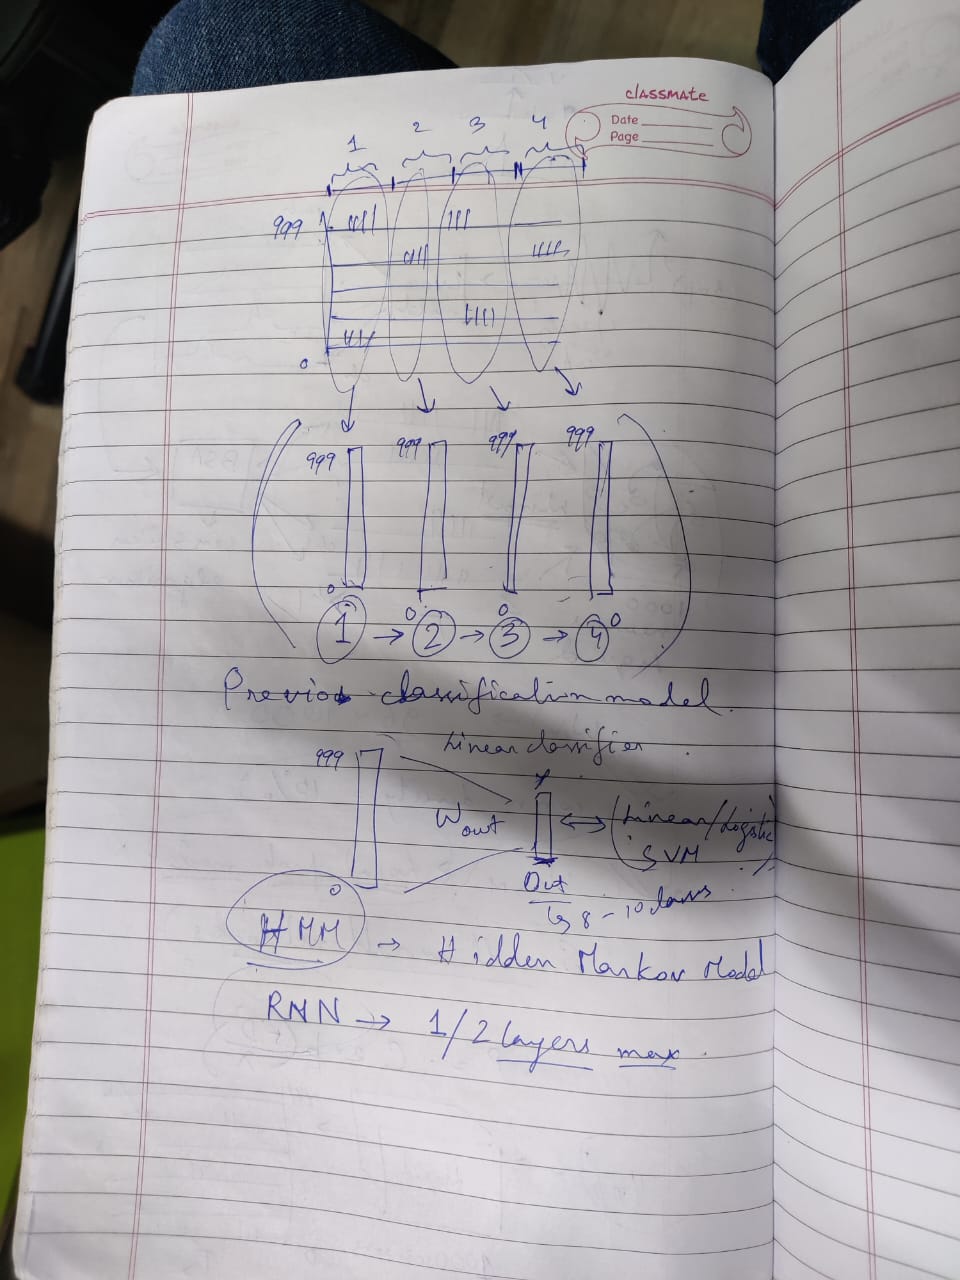 classmate
Date
Page
1 2 3 4
999
0
999 999 999 999
0 0 0 0
1 → 2 → 3 → 4
Previos classification model.
Linear classifier
999
Wout ↔ (Linear/Logistic
SVM)
0
Out
↳ 8-10 classes
HMM → Hidden Markov Model
RNN → 1/2 layers max.